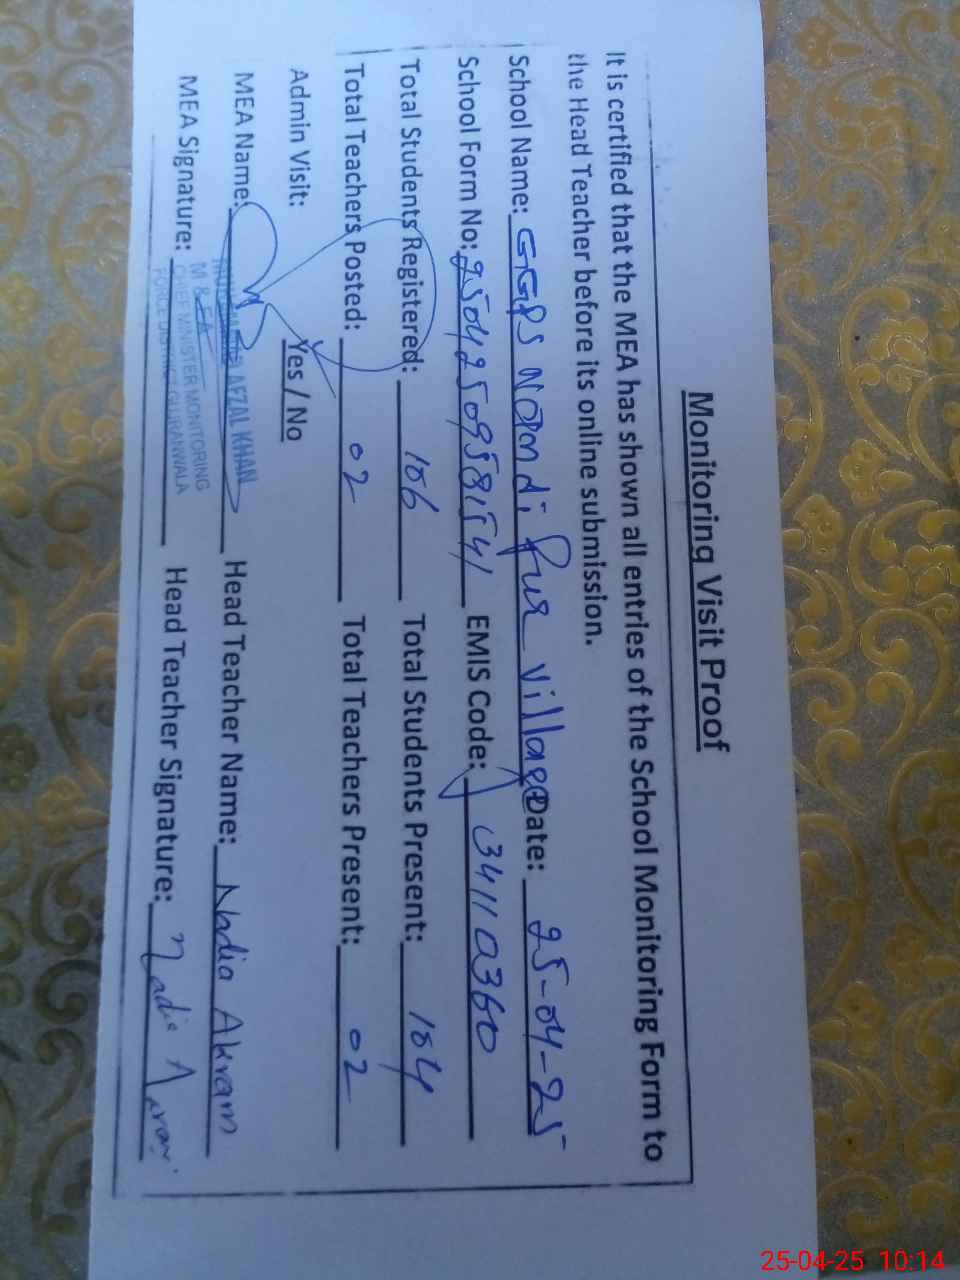 Monitoring Visit Proof
It is certified that the MEA has shown all entries of the School Monitoring Form to
the Head Teacher before its online submission.
School Name: GGPS Nomdi Pur village Date: 25-04-25
School Form No: EMIS Code: 34110360
Total Students Registered: 106 Total Students Present: 104
Total Teachers Posted: 02 Total Teachers Present: 02
Admin Visit: Yes / No
MEA Name: AFZAL KHAN Head Teacher Name: Nadia Akram
M & EA
MEA Signature: Head Teacher Signature: Nadia
CHIEF MINISTER MONITORING
FORCE DISTRICT GUJRANWALA
25-04-25 10:14